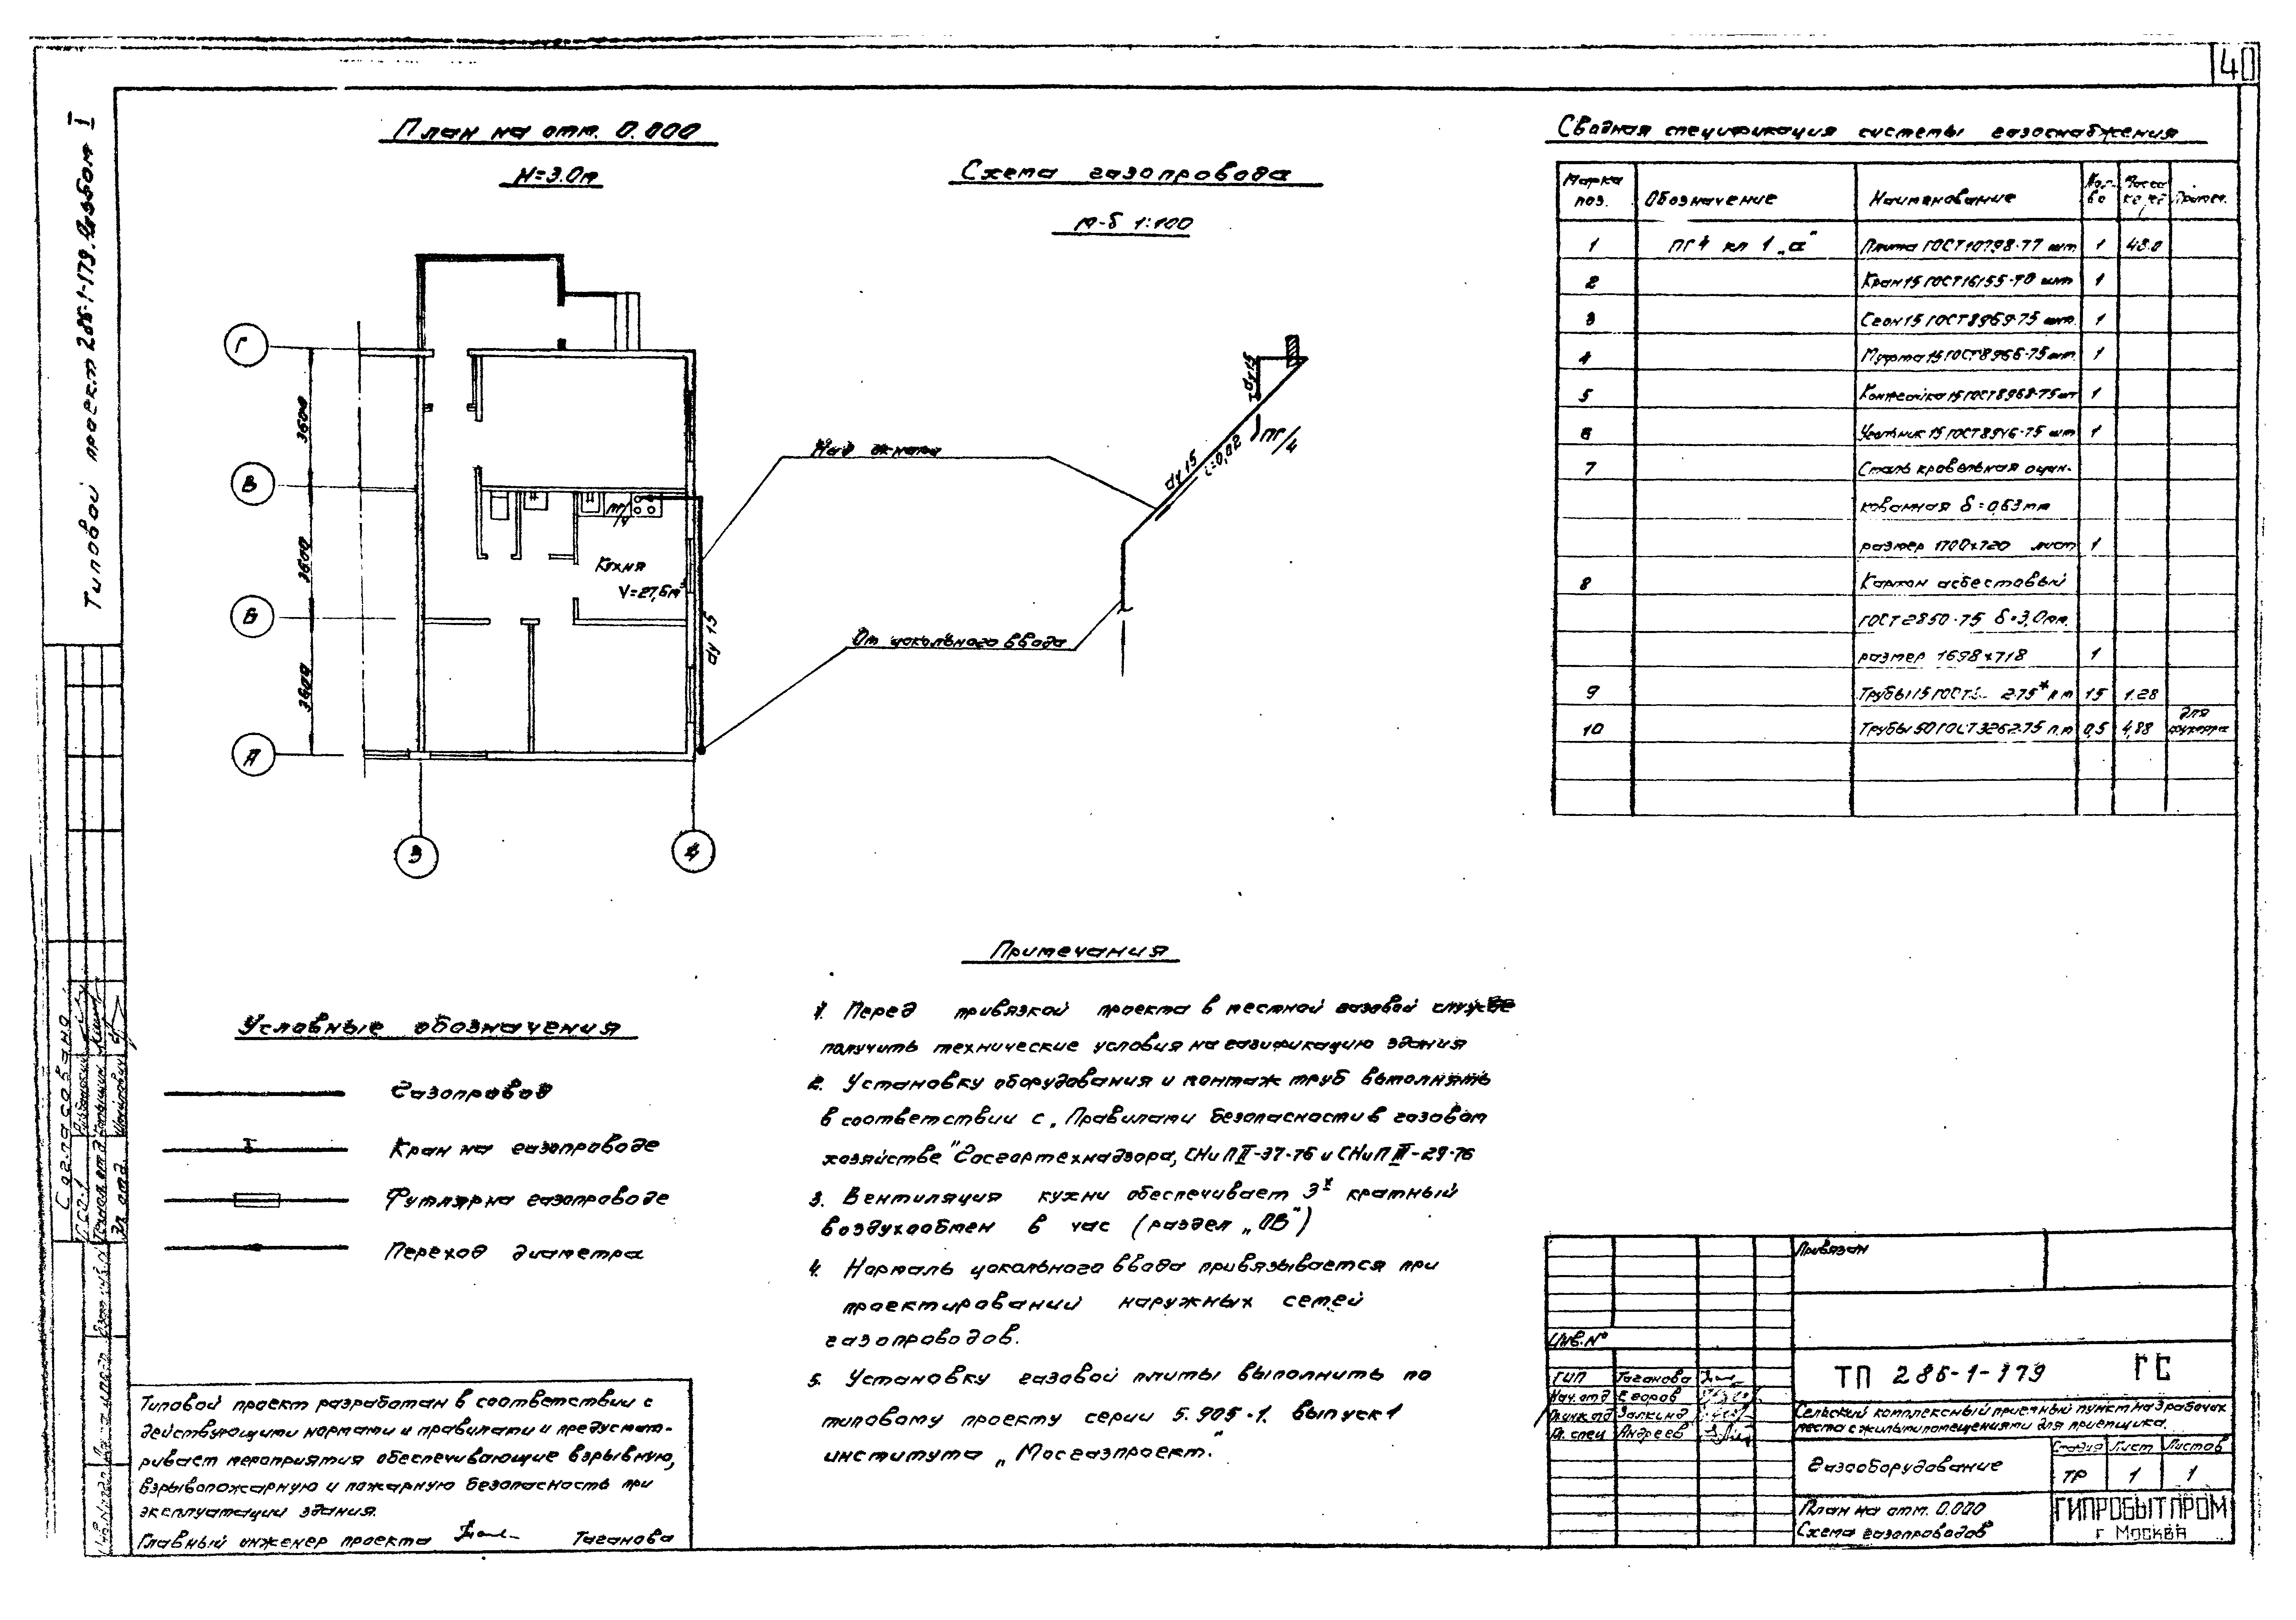 40
Типовой проект 286-1-179. Альбом I
План на отм. 0.000
H=3.0м
Схема газопровода
м-б 1:100
Сводная спецификация системы газоснабжения
Марка поз.
Обозначение
Наименование
Кол-во
Масса кг ед
Примеч.
1 ПГ4 кл 1 „а" Плита ГОСТ 10798-77 шт 1 48.0
2 Кран 15 ГОСТ 16155-70 шт 1
3 Сгон 15 ГОСТ 8969-75 шт. 1
4 Муфта 15 ГОСТ 8966-75 шт. 1
5 Контргайка 15 ГОСТ 8968-75 шт 1
6 Угольник 15 ГОСТ 8946-75 шт 1
7 Сталь кровельная оцин-
кованная δ=0,63мм
размер 1700х720 лист 1
8 Картон асбестовый
ГОСТ 2850-75 δ=3,0мм.
размер 1698х718 1
9 Трубы 15 ГОСТ 2-75* п.м 15 1.28
10 Трубы 50 ГОСТ 3262-75 п.м 0,5 4,88 для футляра
Г
В
Б
А
3
4
3600
3600
3600
ПГ/4
Кухня
V=27,6м³
dy 15
Над окнами
От цокольного ввода
dy 15
i=0,02
dy 15
ПГ/4
Условные обозначения
Газопровод
Кран на газопроводе
Футляр на газопроводе
Переход диаметра
Примечания
1. Перед привязкой проекта в местной газовой службе
получить технические условия на газификацию здания
2. Установку оборудования и монтаж труб выполнять
в соответствии с „Правилами безопасности в газовом
хозяйстве" Госгортехнадзора, СНиП II-37-76 и СНиП III-29-76
3. Вентиляция кухни обеспечивает 3х кратный
воздухообмен в час (раздел „ОВ")
4. Нормаль цокольного ввода привязывается при
проектировании наружных сетей
газопроводов.
5. Установку газовой плиты выполнить по
типовому проекту серии 5.905-1. выпуск 1
института „Мосгазпроект."
Типовой проект разработан в соответствии с
действующими нормами и правилами и предусмат-
ривает мероприятия обеспечивающие взрывную,
взрывопожарную и пожарную безопасность при
эксплуатации здания.
Главный инженер проекта Таганова
Согласовано
Привязан
Инв.N°
ТП 286-1-179 ГС
ГИП Таганова
Нач.отд Егоров
Залкинд
Гл. спец Андреев
Сельский комплексный приемный пункт на 3 рабочих
места с жилыми помещениями для приемщика.
Газооборудование
Стадия Лист Листов
ТР 1 1
План на отм. 0.000
Схема газопроводов
ГИПРОБЫТПРОМ
г Москва